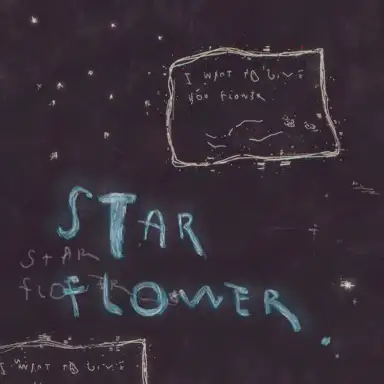 I WANT TO GIVE
YOU FLOWER
STAR
FLOWER
STAR
FLOWER
I WANT TO GIVE